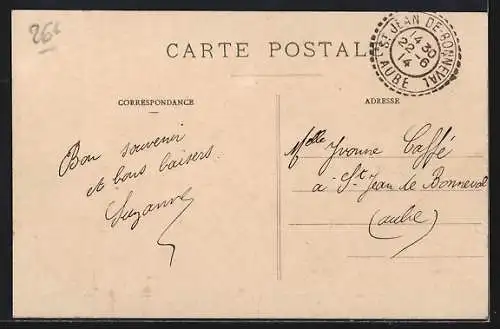 26€
CARTE POSTALE
ST JEAN-DE-BONNEVAL
14 30
22-6
14
AUBE
CORRESPONDANCE
ADRESSE
Bon souvenir
et bons baisers.
Suzanne
Melle Yvonne Caffé
à St Jean de Bonneval
(aube)